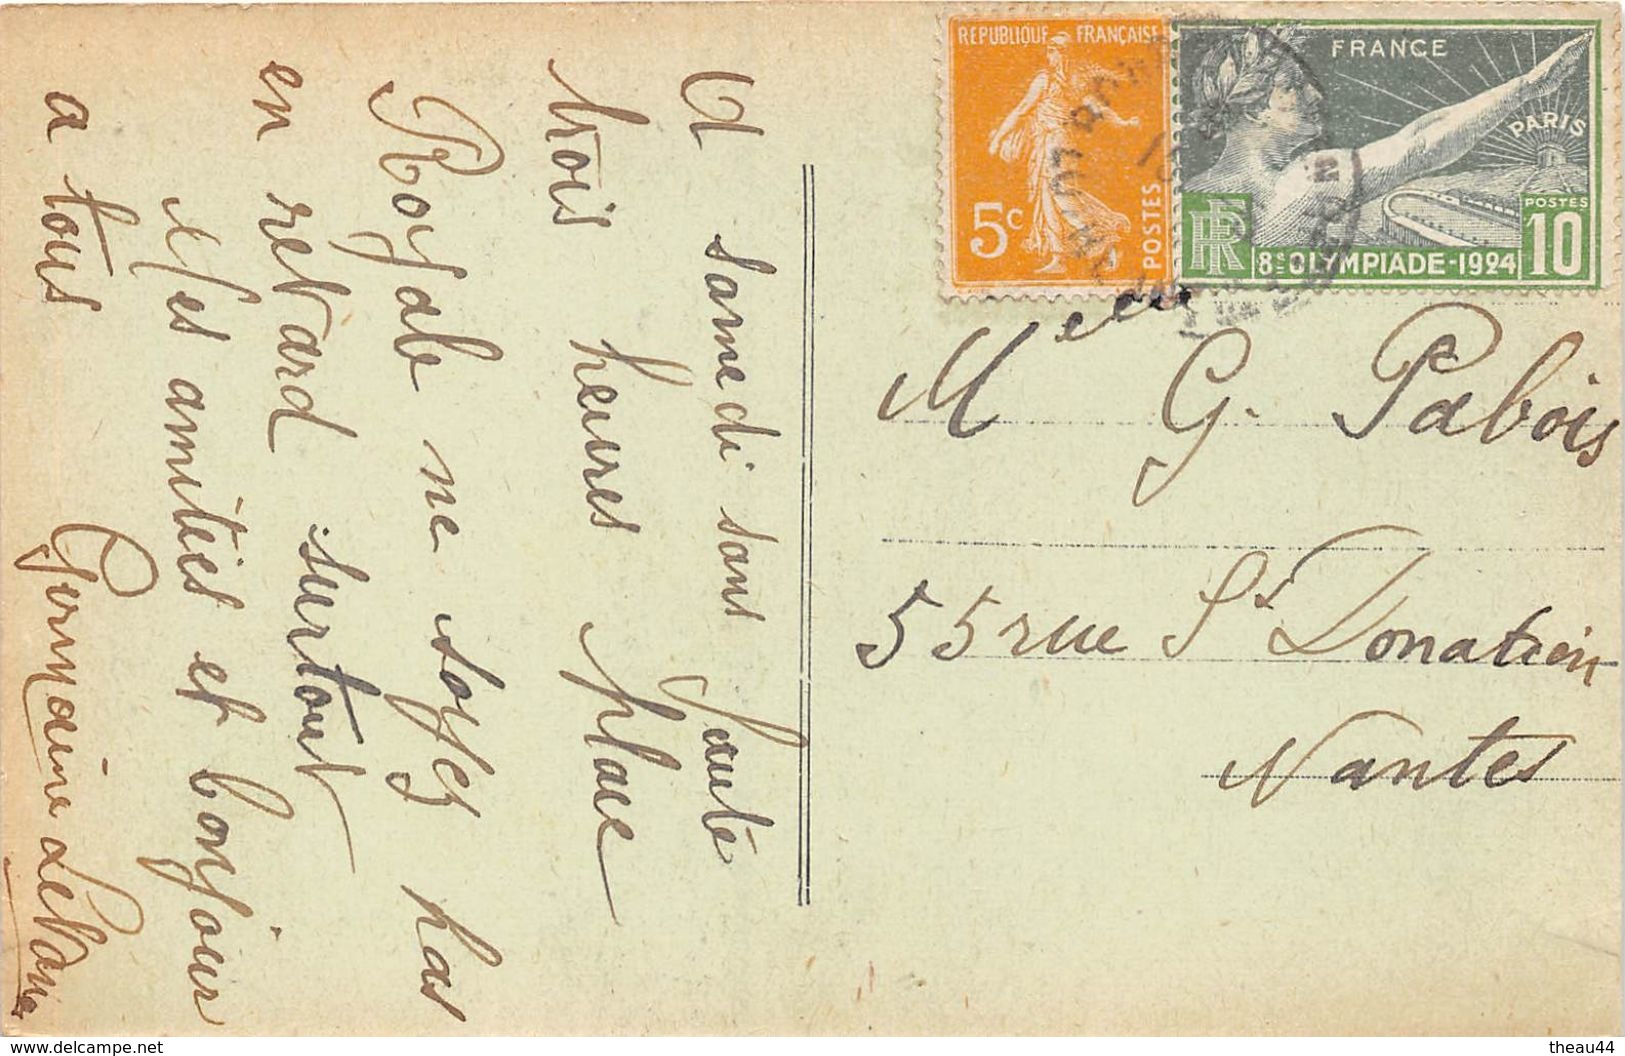 A samedi sans faute
trois heures place
Royale ne soyez pas
en retard surtout
Mes amitiés et bonjour
a tous
Germaine
REPUBLIQUE FRANÇAISE
5c
POSTES
FRANCE
PARIS
POSTES
RF
8s OLYMPIADE-1924
10
Melle G. Pabois
55 rue St Donatien
Nantes
www.delcampe.net
theau44